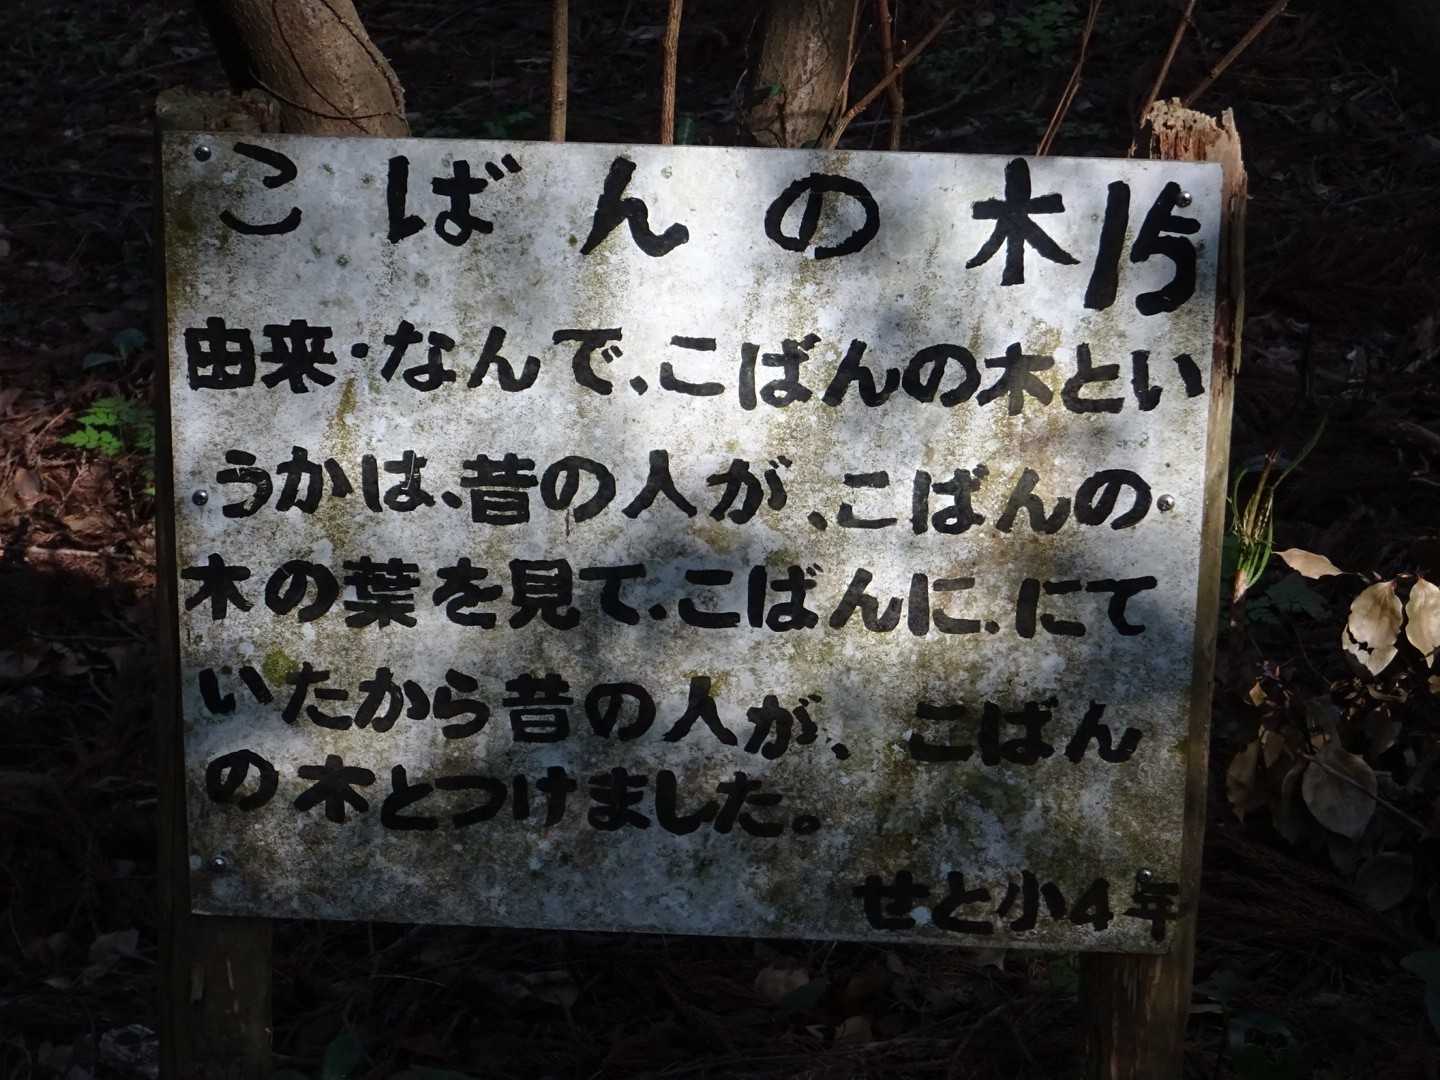 こばんの木15
由来・なんで、こばんの木とい
うかは、昔の人が、こばんの
木の葉を見て、こばんに、にて
いたから昔の人が、こばん
の木とつけました。
せと小4年